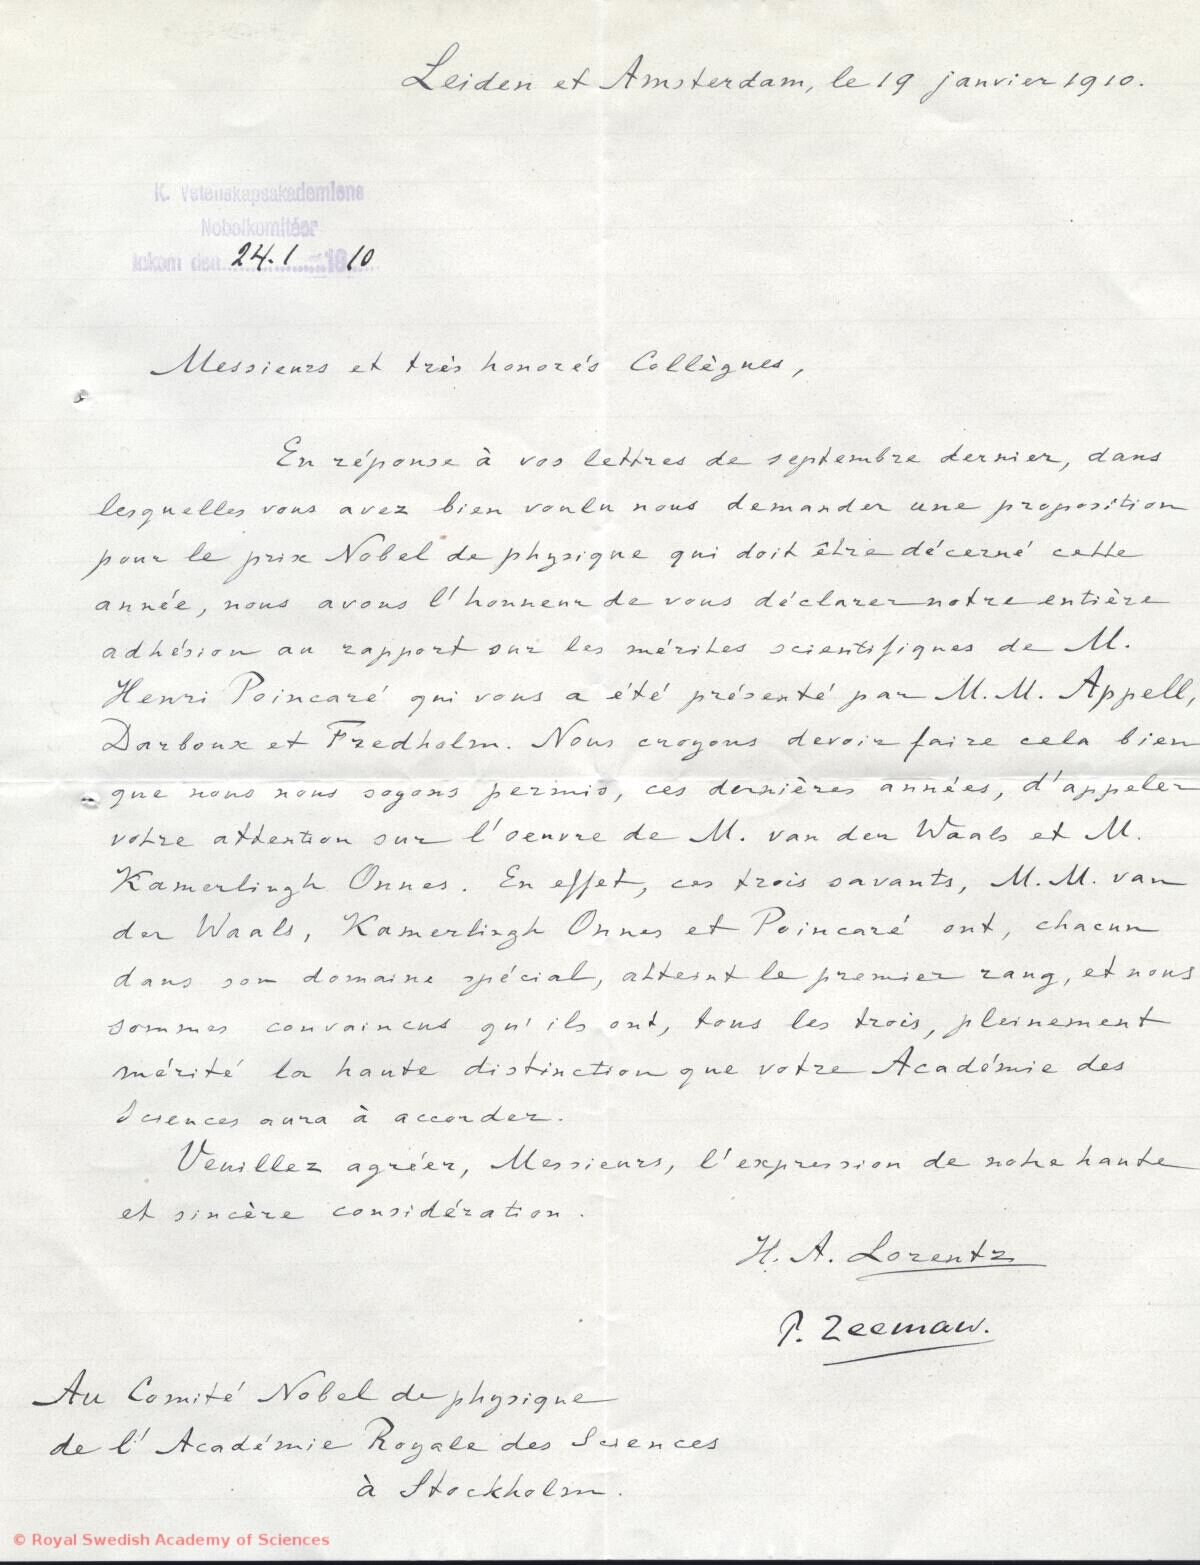 Leiden et Amsterdam, le 19 janvier 1910.
K. Vetenskapsakademiens
Nobelkomitéer
Inkom den 24.1 1910
Messieurs et très honorés Collègues,
En réponse à vos lettres de septembre dernier, dans
lesquelles vous avez bien voulu nous demander une proposition
pour le prix Nobel de physique qui doit être décerné cette
année, nous avons l'honneur de vous déclarer notre entière
adhésion au rapport sur les mérites scientifiques de M.
Henri Poincaré qui vous a été présenté par M.M. Appell,
Darboux et Fredholm. Nous croyons devoir faire cela bien
que nous nous soyons permis, ces dernières années, d'appeler
votre attention sur l'oeuvre de M. van der Waals et M.
Kamerlingh Onnes. En effet, ces trois savants, M.M. van
der Waals, Kamerlingh Onnes et Poincaré ont, chacun
dans son domaine spécial, atteint le premier rang, et nous
sommes convaincus qu'ils ont, tous les trois, pleinement
mérité la haute distinction que votre Académie des
Sciences aura à accorder.
Veuillez agréer, Messieurs, l'expression de notre haute
et sincère considération.
H. A. Lorentz
P. Zeeman.
Au Comité Nobel de physique
de l'Académie Royale des Sciences
à Stockholm.
© Royal Swedish Academy of Sciences